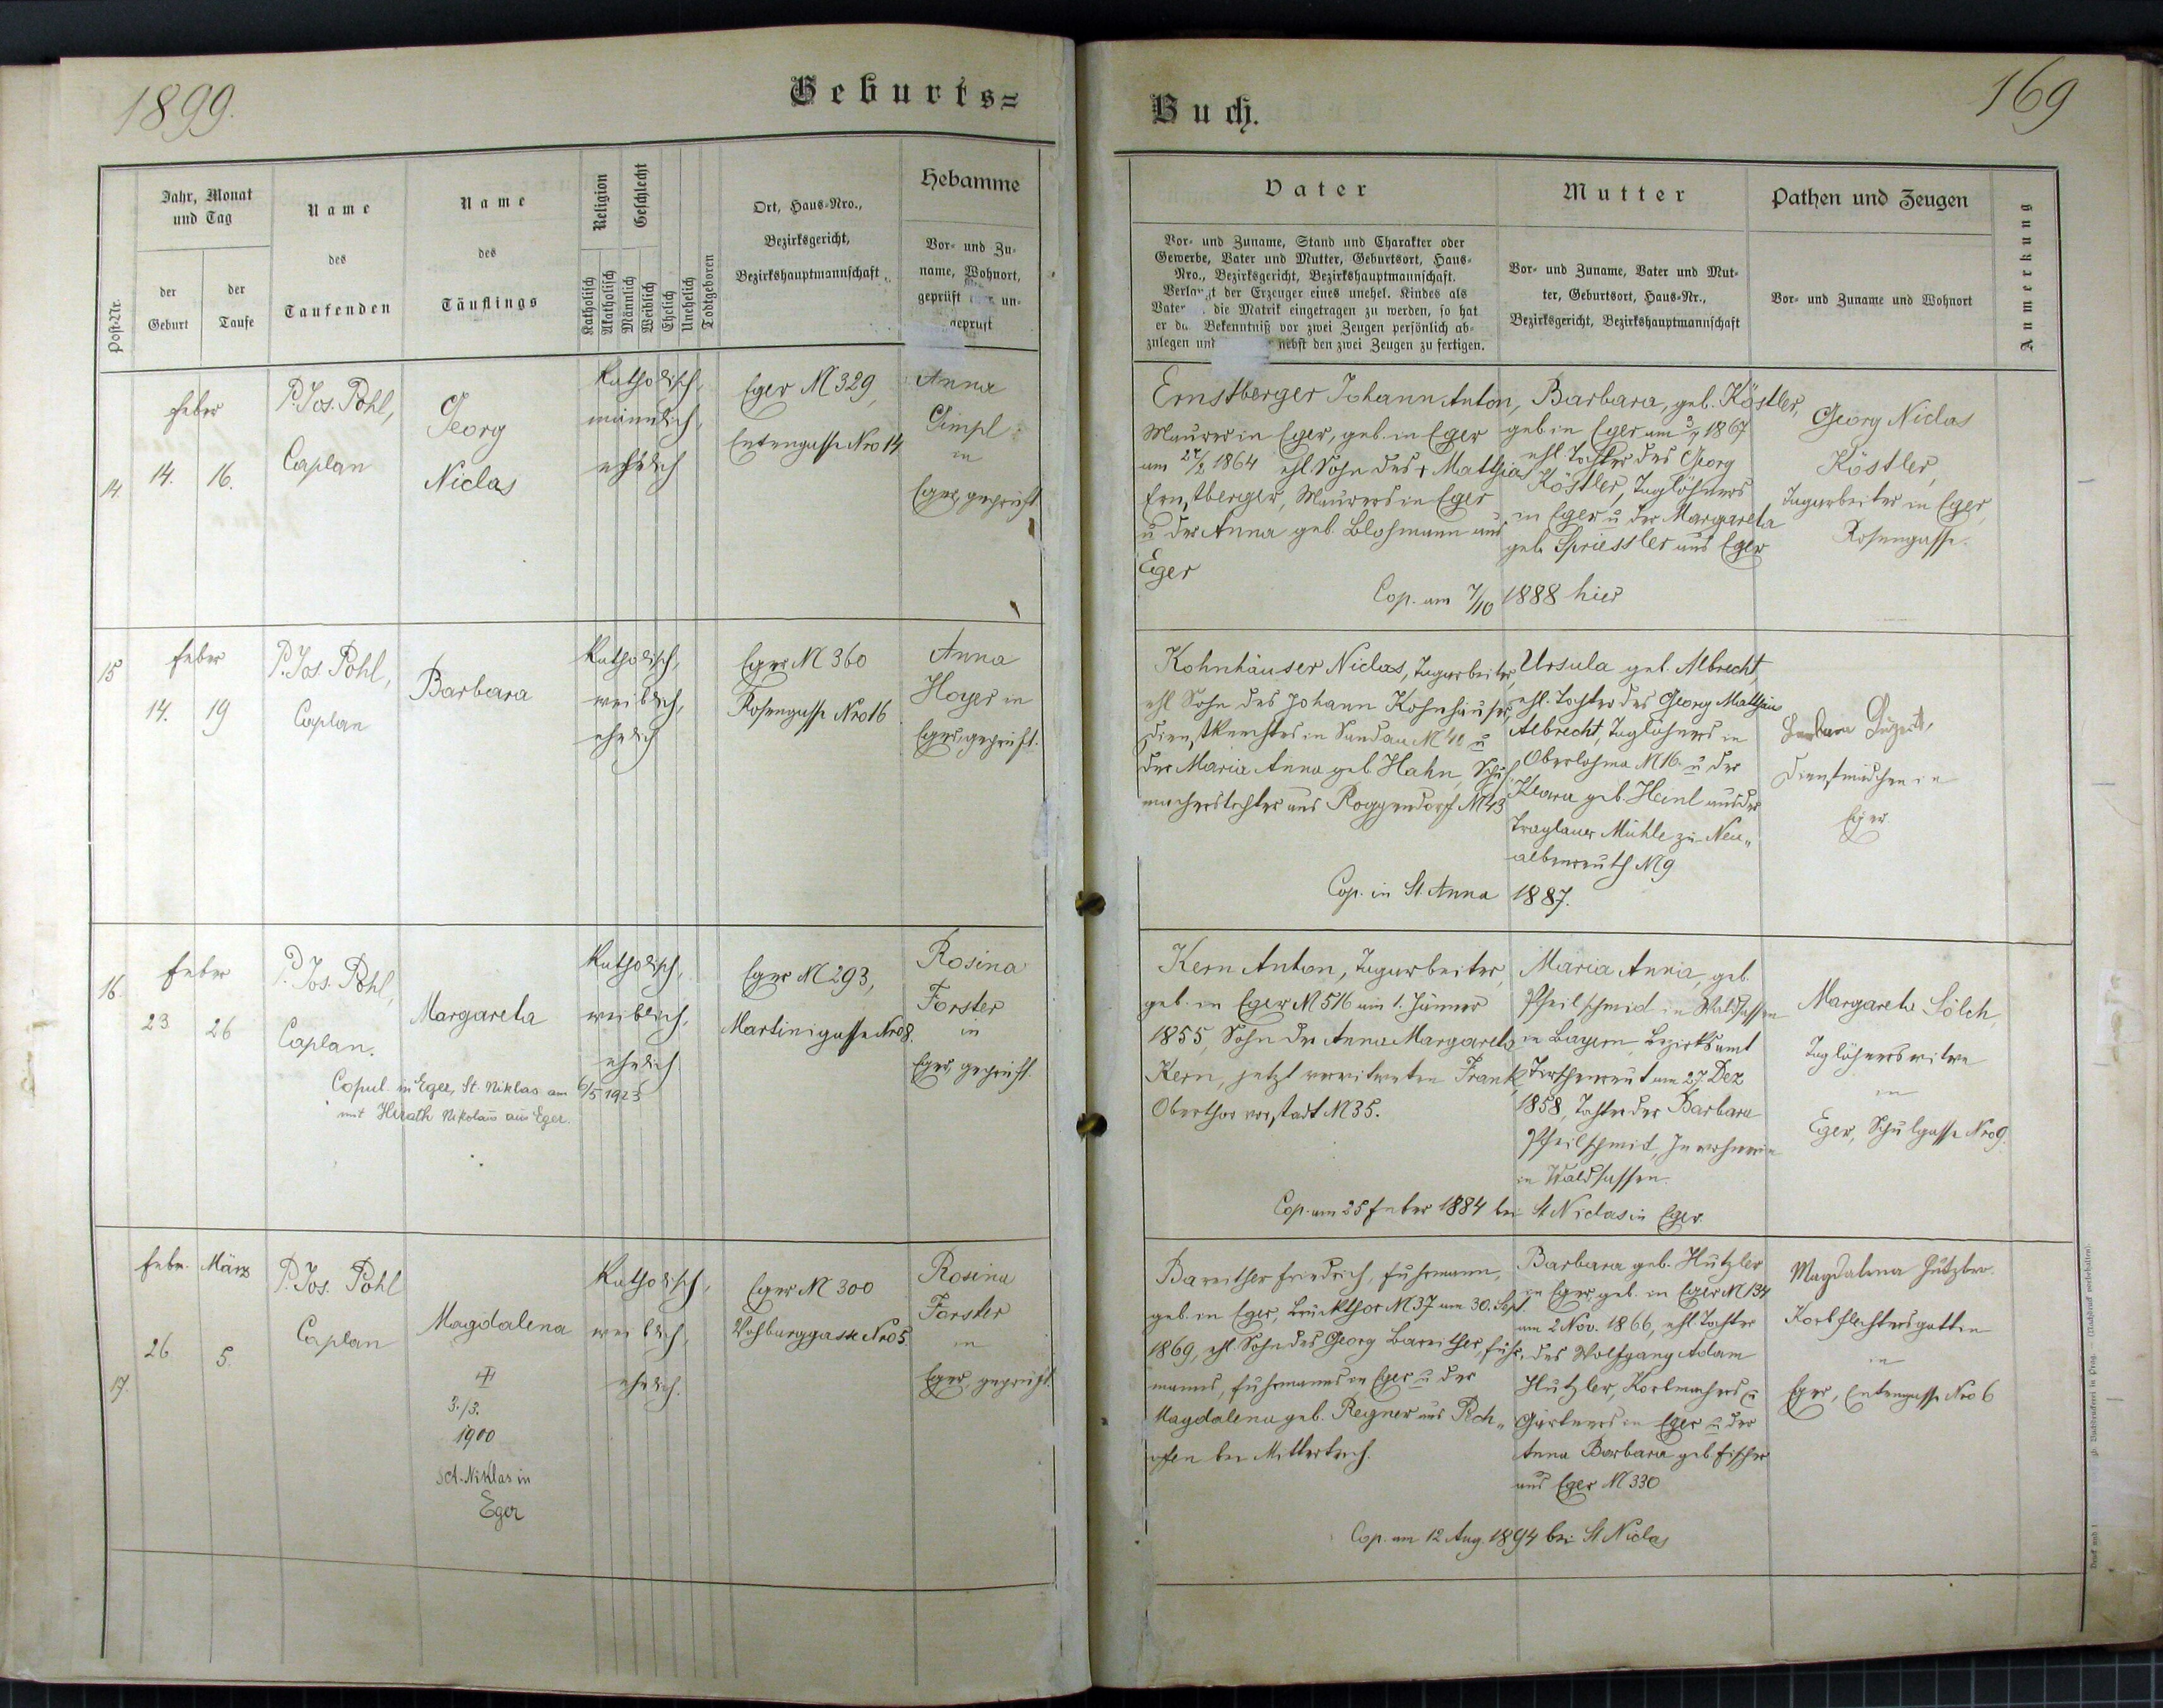 1899.
Geburts=
Post-Nr.
Jahr, Monat
und Tag
der
Geburt
der
Taufe
Name
des
Taufenden
Name
des
Täuflings
Religion
Katholisch
Akatholisch
Geschlecht
Männlich
Weiblich
Ehelich
Unehelich
Todtgeboren
Ort, Haus-Nro.,
Bezirksgericht,
Bezirkshauptmannschaft
Hebamme
Vor- und Zu-
name, Wohnort,
geprüft un-
geprüft
14
Feber
14. 16.
P. Jos. Pohl,
Caplan
Georg
Niclas
Katholisch,
männlich,
ehelich
Eger N 329,
Entengasse Nro 14
Anna
Gimpl
in
Eger, geprüft.
15
Feber
14. 19
P. Jos. Pohl,
Caplan
Barbara
Katholisch,
weiblich,
ehelich
Eger N 360
Rosengasse Nro 16
Anna
Hoyer in
Eger, geprüft.
16.
Feber
23 26
P. Jos. Pohl,
Caplan.
Margareta
Katholisch,
weiblich,
ehelich
Copul. in Eger, St. Niklas am 6/5 1923
mit Hirath Nikolaus aus Eger.
Eger N 293,
Martinigasse Nro 8.
Rosina
Forster
in
Eger, geprüft.
17.
Febr. März
26 5.
P. Jos. Pohl
Caplan
Magdalena
3./3.
1900
Sct. Niklas in
Eger
Katholisch,
weiblich,
ehelich.
Eger N 300
Vohburggasse Nro 5
Rosina
Forster
in
Eger, geprüft.
Buch.
169
Vater
Vor- und Zuname, Stand und Charakter oder
Gewerbe, Vater und Mutter, Geburtsort, Haus-
Nro., Bezirksgericht, Bezirkshauptmannschaft.
Verlangt der Erzeuger eines unehel. Kindes als
Vater die Matrik eingetragen zu werden, so hat
er da Bekenntniß vor zwei Zeugen persönlich ab-
zulegen und nebst den zwei Zeugen zu fertigen.
Mutter
Vor- und Zuname, Vater und Mut-
ter, Geburtsort, Haus-Nr.,
Bezirksgericht, Bezirkshauptmannschaft
Pathen und Zeugen
Vor- und Zuname und Wohnort
Anmerkung
Ernstberger Johann Anton,
Maurer in Eger, geb. in Eger
am 27/2 1864 ehl. Sohn des + Mathias
Ernstberger, Maurers in Eger
u der Anna geb. Lohmann aus
Eger
Barbara, geb. Köstler,
geb. in Eger am 1867
ehl. Tochter des Georg
Köstler, Taglöhners
in Eger u der Margareta
geb. Spriessler aus Eger
Cop. am 7/10 1888 hier
Georg Niclas
Köstler,
Tagarbeiter in Eger,
Rosengasse.
Kohnhäuser Niclas, Tagarbeiter,
ehl. Sohn des Johann Kohnhäuser,
Dienstknechtes in Sandau N 40 u
der Maria Anna geb. Hahn, Schuh-
macherstochter aus Roggendorf N 43
Ursula geb. Albrecht,
ehl. Tochter des Georg Mathias
Albrecht, Taglöhners in
Oberlohma N 16. u der
Klara geb. Heinl aus der
Traglauer Mühle zu Neu-
albenreuth N 9
Cop. in St. Anna 1887.
Barbara
Dienstmädchen in
Eger
Kern Anton, Tagarbeiter,
geb. in Eger N 516 am 1. Jänner
1855, Sohn der Anna Margareta
Kern, jetzt verwitweten Frank,
Oberthorvorstadt N 35.
Maria Anna, geb.
Pfeilschmid in Waldsassen
in Bayern, Bezirksamt
Tirschenreut am 27. Dez
1858, Tochter der Barbara
Pfeilschmid, Inwohnerin
in Waldsassen.
Cop. am 25 Feber 1884 bei St Niclas in Eger.
Margareta Sölch,
Taglöhnerswitwe
in
Eger, Schulgasse Nro 9.
Bareither Friedrich, Fuhrmann,
geb. in Eger, Brückthor N 37 am 30. Sept.
1869, ehl. Sohn des Georg Bareither, Fuhr-
manns, Fuhrmanns in Eger u der
Magdalena geb. Regner aus Pech-
ofen bei Mitterteich.
Barbara geb. Hutzler
in Eger, geb. in Eger N 134
am 2 Nov. 1866, ehl. Tochter
des Wolfgang Adam
Hutzler, Korbmachers u
Gärtners in Eger u der
Anna Barbara geb. Fischer
aus Eger N 330
Cop. am 12 Aug. 1894 bei St Niclas
Magdalena Hutzler
Korbflechtersgattin
in
Eger, Entengasse Nro 6